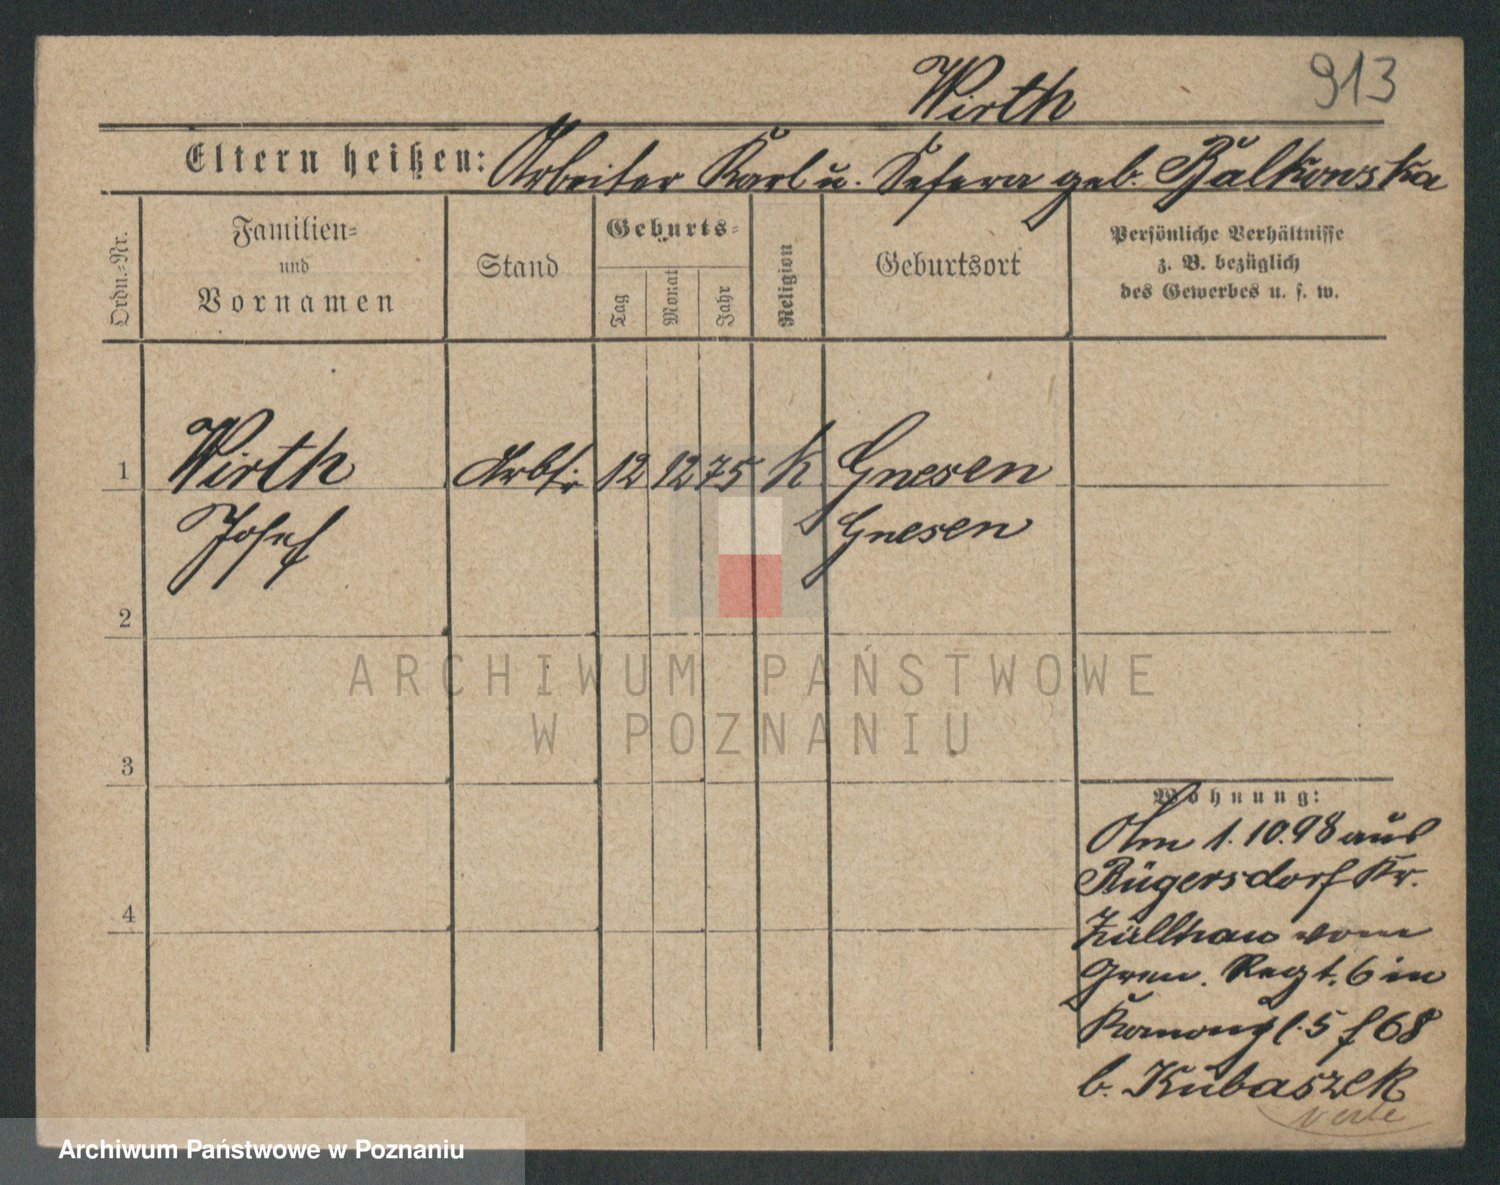 Wirth 913
Eltern heißen: Arbeiter Karl u. Sefera geb. Balkowska
Ordn.-Nr.
Familien-
und
Vornamen
Stand
Geburts-
Tag
Monat
Jahr
Religion
Geburtsort
Persönliche Verhältnisse
z. B. bezüglich
des Gewerbes u. s. w.
1 Wirth Arbtr. 12 12 75 k Gnesen
Josef Gnesen
2
3
4
Wohnung:
Am 1.10.98 aus
Rügersdorf Kr.
Züllhau vom
Gren. Regt. 6 in
5 f 68
b. Kubaszek
ARCHIWUM PAŃSTWOWE
W POZNANIU
Archiwum Państwowe w Poznaniu